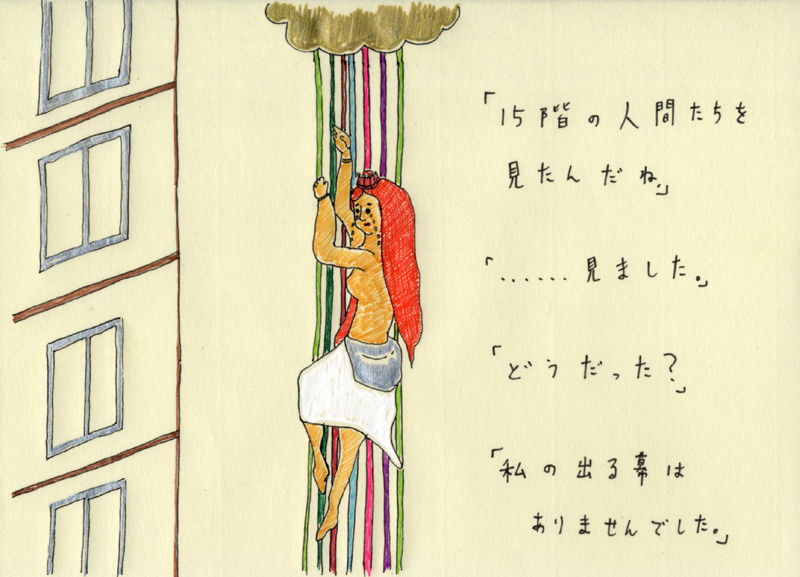 「15階の人間たちを
見たんだね。」
「......見ました。」
「どうだった?」
「私の出る幕は
ありませんでした。」